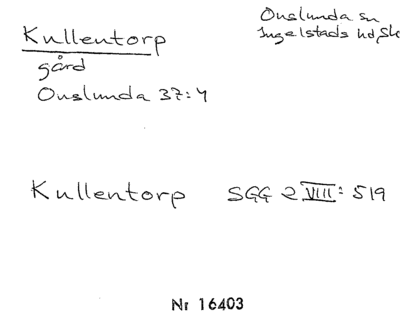 Kullentorp
Onslunda sn
Ingelstads hd, Sk
gård
Onslunda 37:4
Kullentorp SGG 2 VIII: 519
Nr 16403